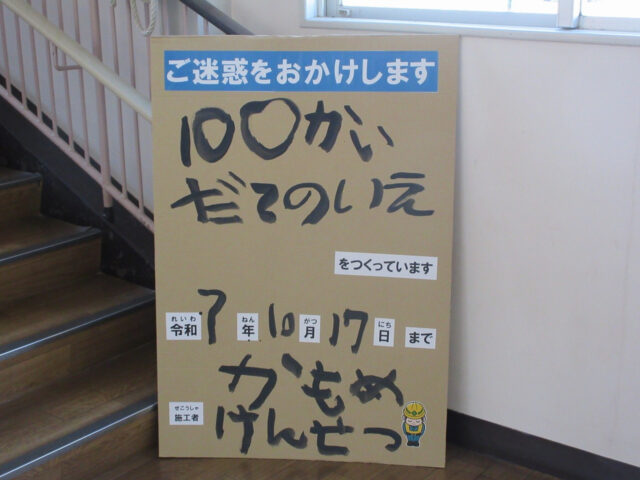 ご迷惑をおかけします
100かい
だてのいえ
をつくっています
れいわ ねん がつ にち
令和7年10月17日まで
かもめ
せこうしゃ
施工者
けんせつ